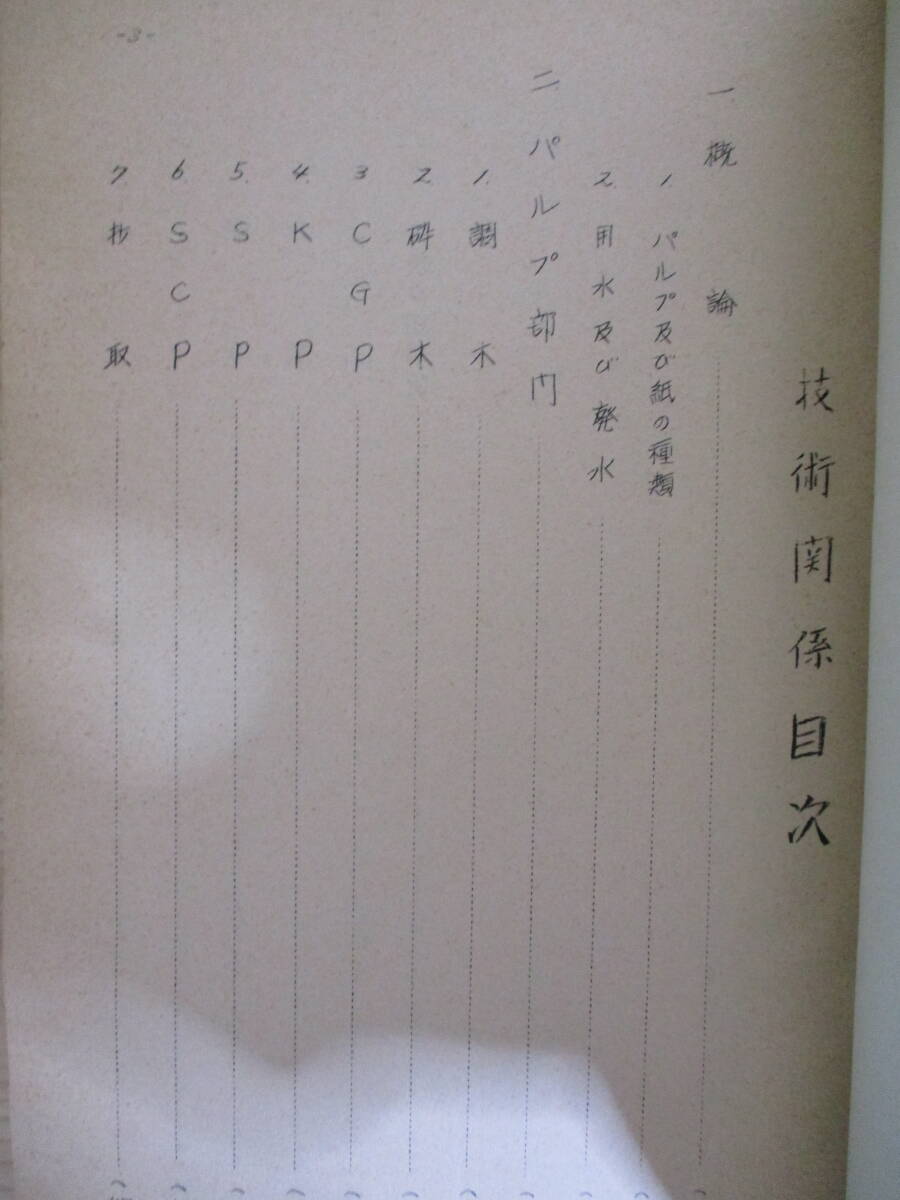 技術関係目次
一 概論
1. パルプ及び紙の種類
2. 用水及び廃水
二 パルプ部門
1. 調木
2. 砕木
3 CGP
4. KP
5. SP
6. SCP
7. 抄取
-3-